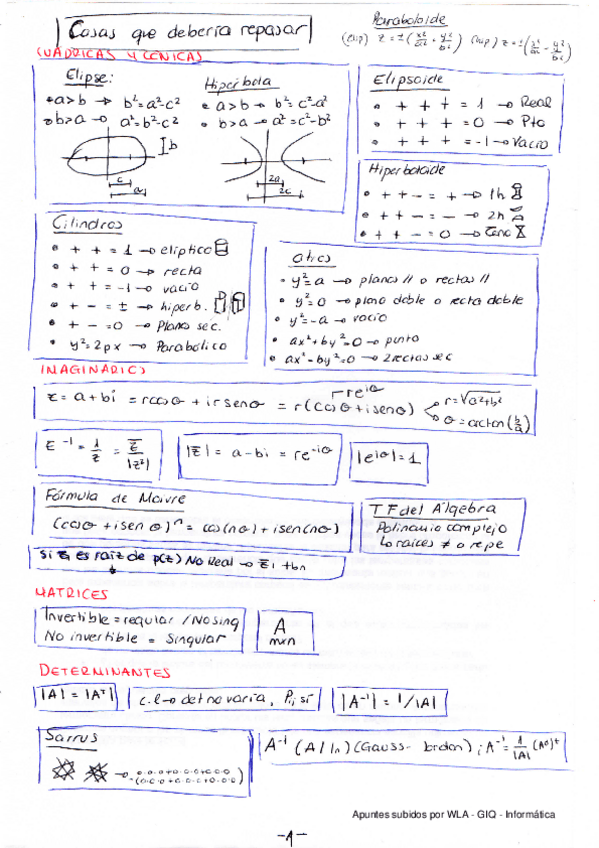 Cosas que debería repasar
Paraboloide
(elip) z = ± (x²/a² + y²/b²) (hip) z = ± (x²/a² - y²/b²)
CUÁDRICAS Y CÓNICAS
Elipse:
• a>b → b² = a²-c²
• b>a → a² = b²-c²
b
c
a
Hipérbola
• a>b → b² = c²-a²
• b>a → a² = c²-b²
2a
2c
Elipsoide
• + + + = 1 → Real
• + + + = 0 → Pto
• + + + = -1 → Vacio
Hiperboloide
• + + - = + → 1h
• + + - = - → 2h
• + + - = 0 → Cono
Cilindros
• + + = 1 → eliptico
• + + = 0 → recta
• + + = -1 → vacio
• + - = ± → hiperb.
• + - = 0 → Planos sec.
• y² = 2px → Parabólico
otros
• y² = a → planos // o rectas //
• y² = 0 → plano doble o recta doble
• y² = -a → vacio
• ax² + by² = 0 → punto
• ax² - by² = 0 → 2 rectas sec
IMAGINARIOS
re^iθ
z = a + bi = r cos θ + i r sen θ = r (cos θ + i sen θ)
r = √a²+b²
θ = arctan (b/a)
z⁻¹ = 1/z = z̅/|z²|
|z̅| = a - bi = re^-iθ
|e^iθ| = 1
Fórmula de Moivre
(cos θ + i sen θ)ⁿ = cos(nθ) + i sen(nθ)
T F del Álgebra
Polinomio complejo
Lo raices ≠ o repe
Si z₁ es raiz de p(z) No Real → z̅₁ tbn
MATRICES
Invertible = regular / No sing
No invertible = Singular
A
mxn
DETERMINANTES
|A| = |Aᵗ|
c.l → det no varia, Pij si
|A⁻¹| = 1/|A|
Sarrus
A⁻¹ (A | In) (Gauss-Jordan) ; A⁻¹ = 1/|A| (Aᵃ)ᵗ
Apuntes subidos por WLA - GIQ - Informática
-1-